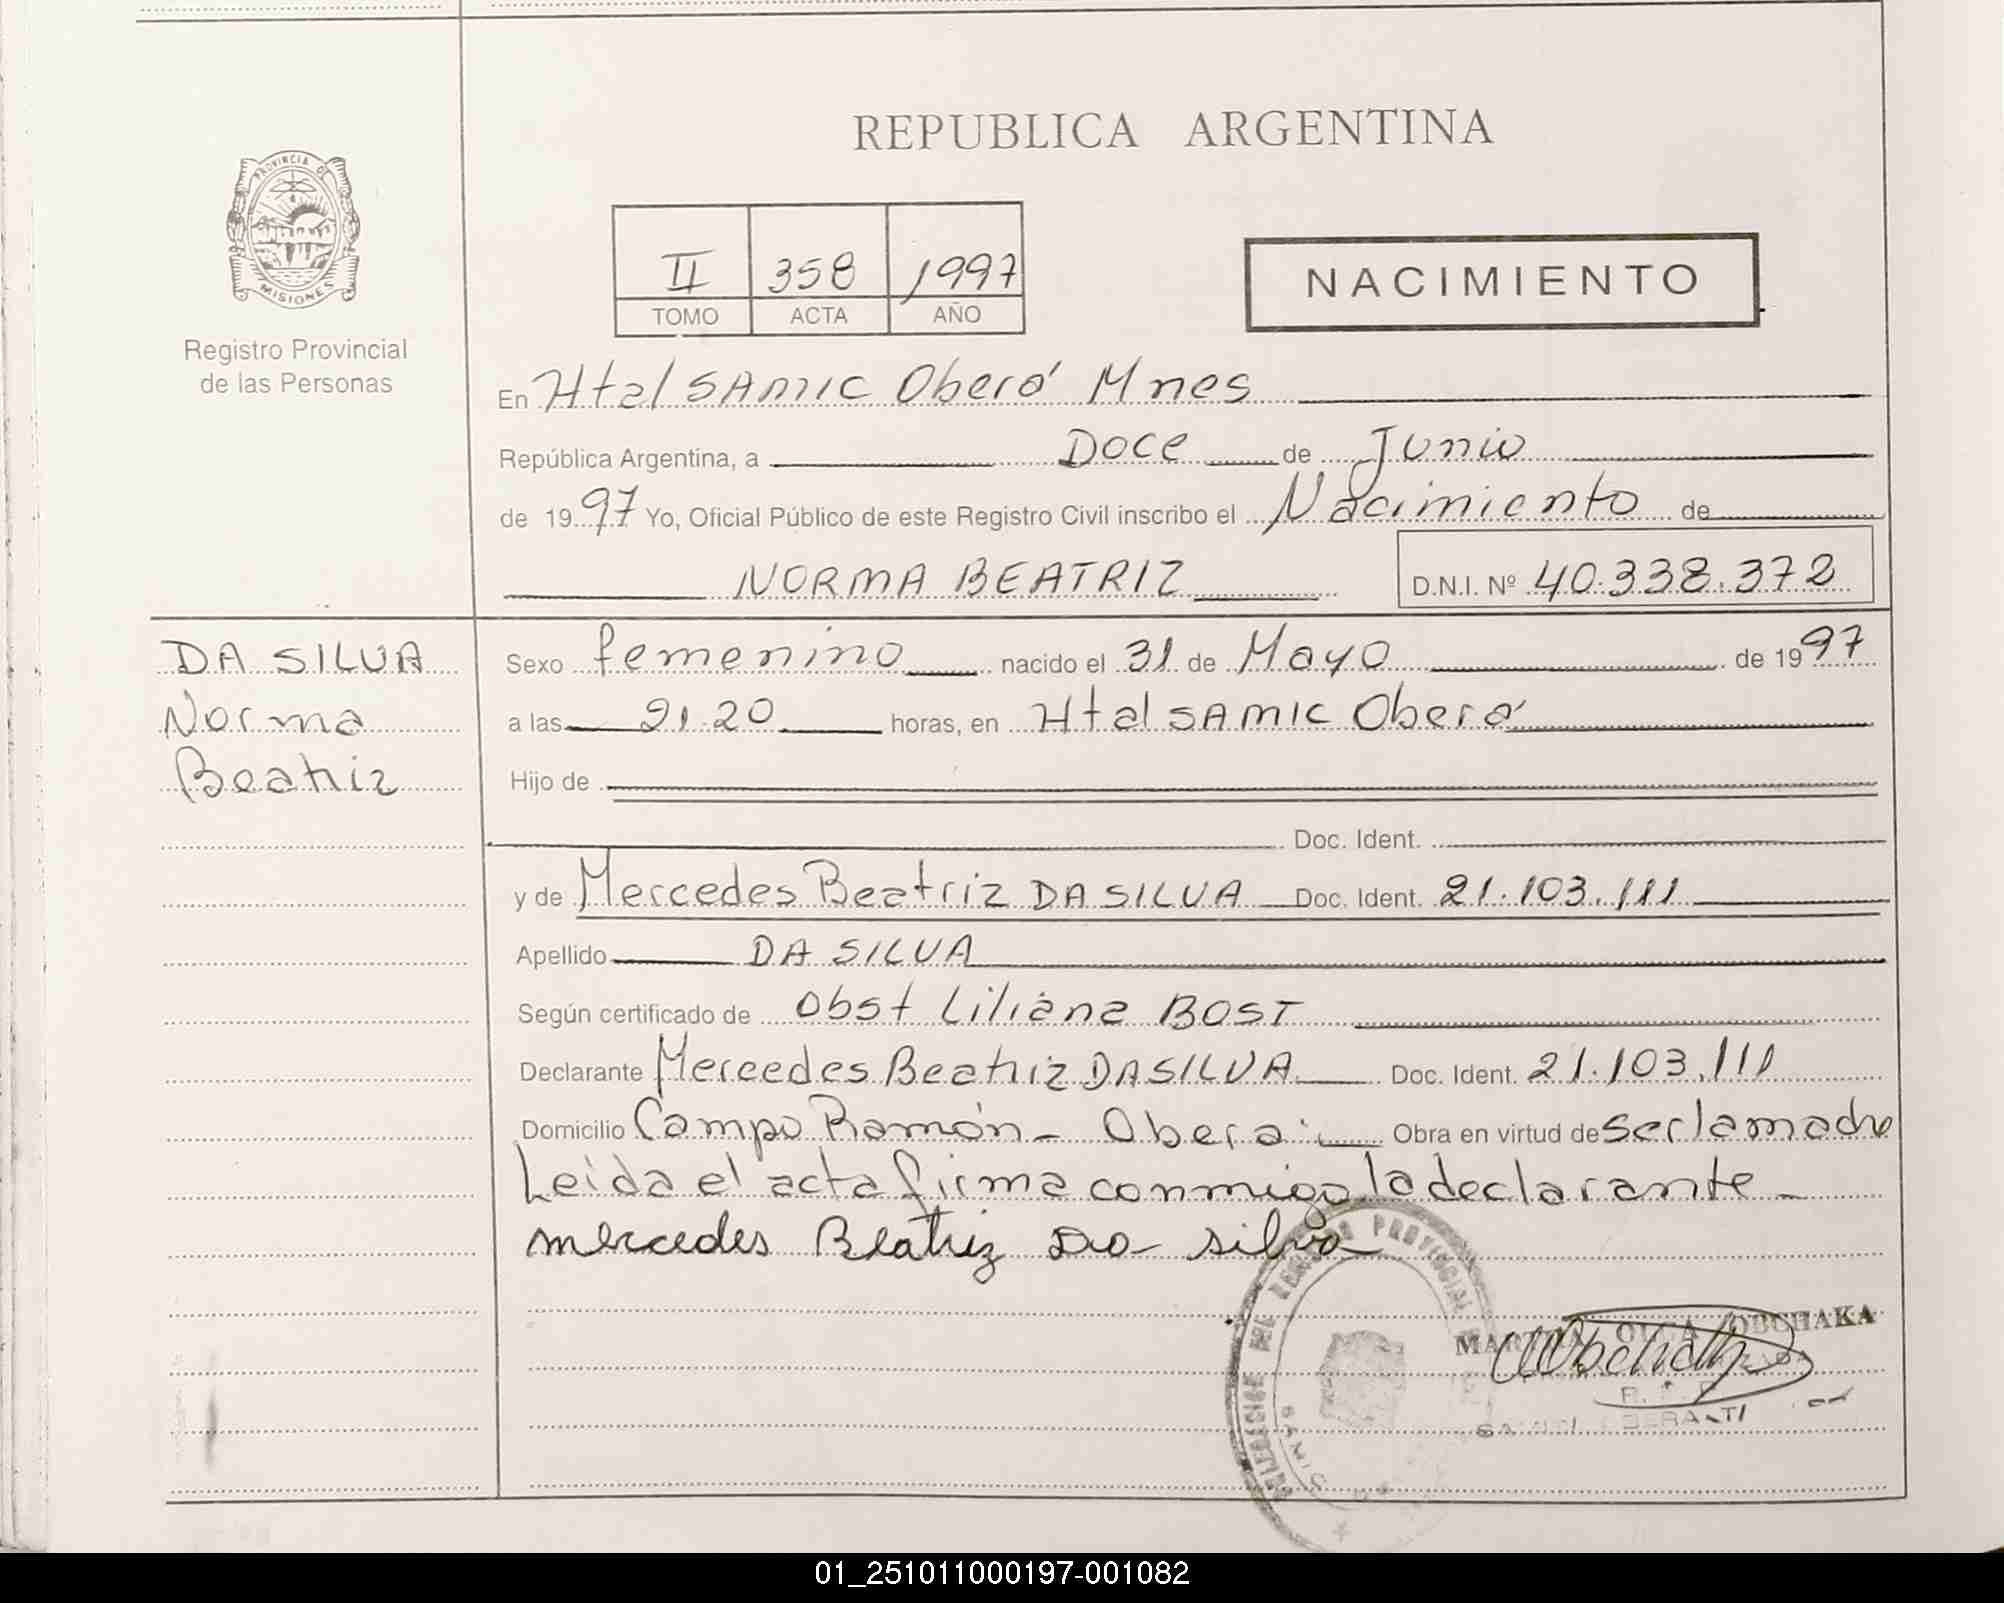 REPUBLICA ARGENTINA
PROVINCIA DE
MISIONES
Registro Provincial
de las Personas
II 358 1997
TOMO ACTA AÑO
NACIMIENTO
En Htal SAMIC Oberá Mnes
República Argentina, a Doce de Junio
de 1997 Yo, Oficial Público de este Registro Civil inscribo el Nacimiento de
NORMA BEATRIZ D.N.I. Nº 40.338.372
DA SILVA
Norma
Beatriz
Sexo femenino nacido el 31 de Mayo de 1997
a las 21.20 horas, en Htal SAMIC Oberá
Hijo de
Doc. Ident.
y de Mercedes Beatriz DA SILVA Doc. Ident. 21.103.111
Apellido DA SILVA
Según certificado de Obst Liliana BOST
Declarante Mercedes Beatriz DA SILVA Doc. Ident. 21.103.111
Domicilio Campo Ramón - Oberá Obra en virtud de ser la madre
Leída el acta firma conmigo la declarante
mercedes Beatriz Da silva
PROVINCIAL
OLGA OBCHAKA
01_251011000197-001082